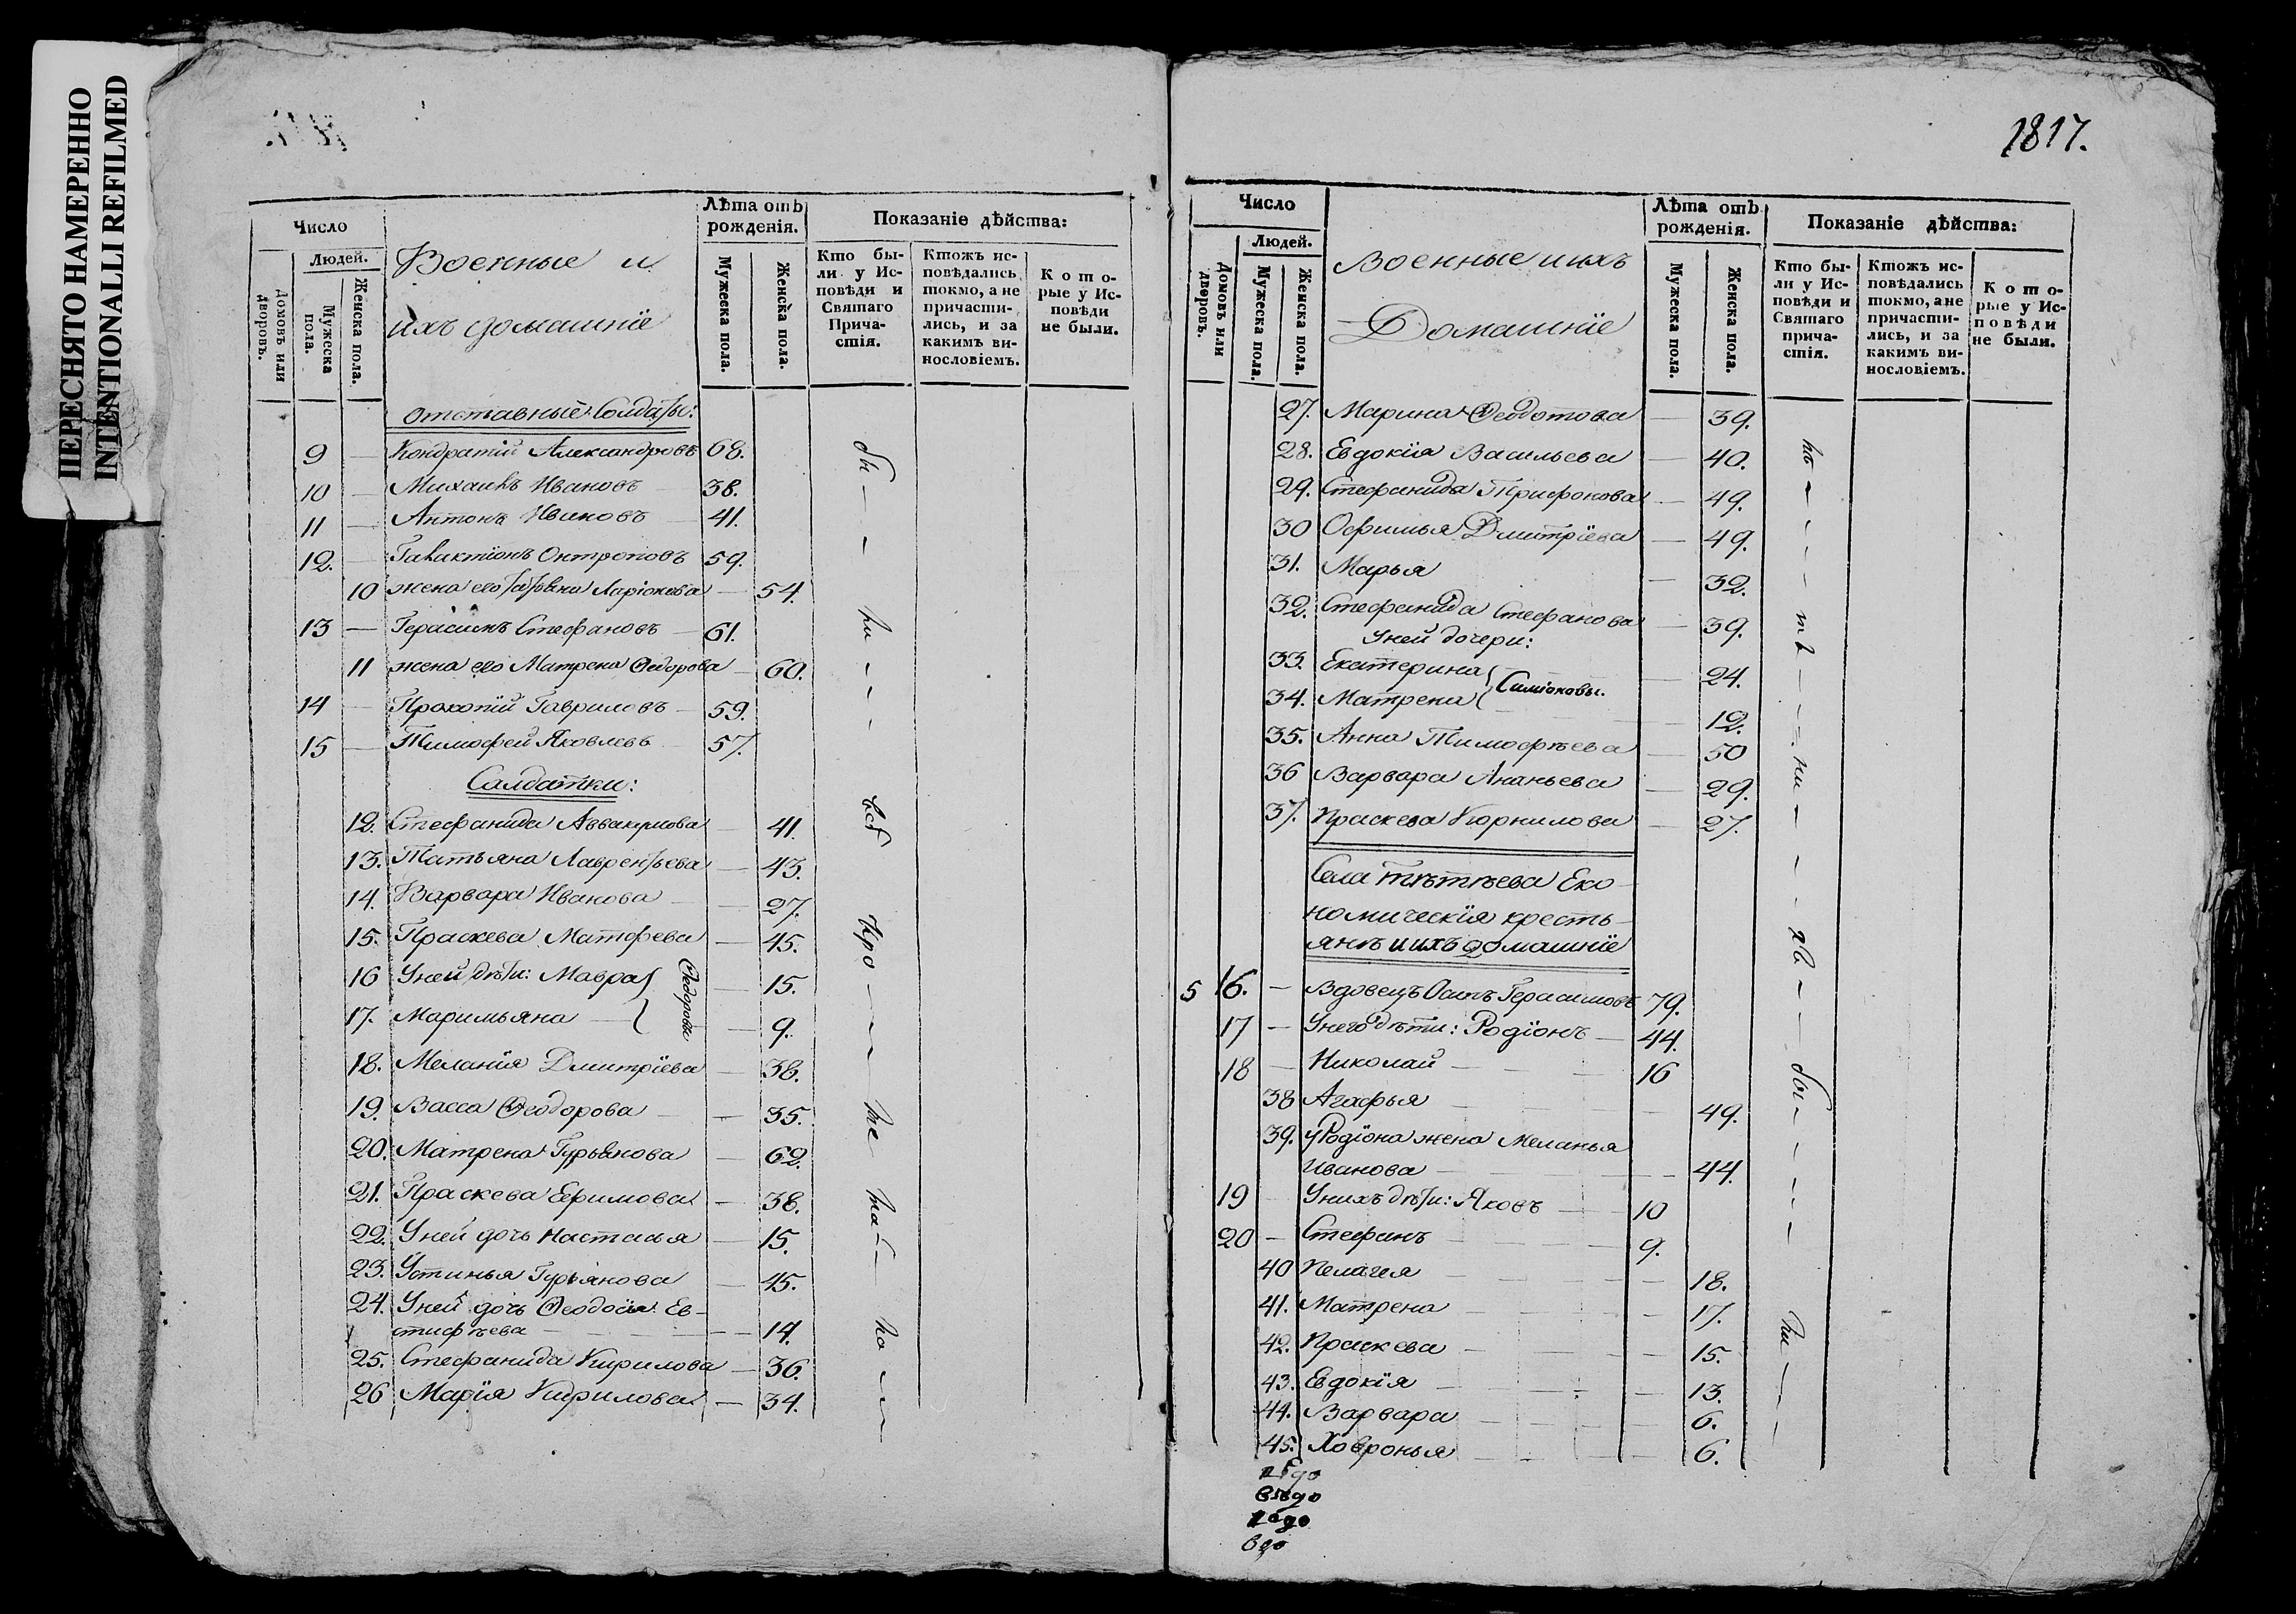 ПЕРЕСНЯТО НАМЕРЕННО
INTENTIONALLI REFILMED
Число
Людей.
Домовъ или дворовъ.
Мужеска пола.
Женска пола.
Военные и
ихъ домашніе
Лѣта отъ рожденія.
Мужеска пола.
Женска пола.
Показаніе дѣйства:
Кто бы-
ли у Ис-
повѣди и
Святаго
Прича-
стія.
Ктожъ ис-
повѣдались
токмо, а не
причасти-
лись, и за
какимъ ви-
нословіемъ.
Кото-
рые у Ис-
повѣди
не были.
отставные Солдаты:
9 — Кондратій Александровъ 68.
10 — Михаилъ Ивановъ 38.
11 — Антонъ Ивановъ 41.
12. Галактіонъ Онтроповъ 59.
10 жена его Татьяна Ларіонова — 54.
13 — Герасимъ Стефановъ — 61.
11 жена его Матрена Ѳедорова — 60.
14 — Прокопій Гавриловъ — 59.
15 — Тимофей Яковлевъ 57.
Салдатки:
12. Стефанида Аввакумова — 41.
13. Татьяна Лаврентьева — 43.
14. Варвара Иванова — 27.
15. Праскева Матфева — 45.
16 Уней дѣти: Мавра — 15.
Ѳедоровы
17. Маримьяна — 9.
18. Меланія Дмитріева — 38.
19. Васса Ѳеодорова — 35.
20. Матрена Гурьянова — 62.
21. Праскева Ефимова — 38.
22. Уней дочь Настасья — 15.
23. Устинья Гурьянова — 45.
24. Уней дочь Ѳеодосія Ев-
стифѣева — 14.
25. Стефанида Кирилова — 36.
26 Марія Кирилова — 34.
1817.
Число
Людей.
Домовъ или дворовъ.
Мужеска пола.
Женска пола.
Военные и ихъ
Домашніе
Лѣта отъ рожденія.
Мужеска пола.
Женска пола.
Показаніе дѣйства:
Кто бы-
ли у Ис-
повѣди и
Святаго
прича-
стія.
Ктожъ ис-
повѣдались
токмо, ане
причасти-
лись, и за
какимъ ви-
нословіемъ.
Кото-
рые у Ис-
повѣди
не были.
27. Марина Ѳеодотова — 39.
28. Евдокія Васильева — 40.
29. Стефанида Трифонова — 49.
30 Офимья Дмитріева — 49.
31. Марья — 32.
32. Стефанида Стефанова — 39.
Уней дочери:
33. Екатерина — 24.
Симіоновы.
34. Матрена — 12.
35. Анна Тимофѣева — 50
36 Варвара Ананьева — 29.
37. Праскева Корнилова — 27.
Села Тѣтѣева Еко-
номическія кресть-
янѣ и ихъ домашніе
5 16. — Вдовецъ Осипъ Герасимовъ 79.
17 — Унего дѣти: Родіонъ — 44.
18 — Николай — 16
38 Агафья — 49.
39. у Родіона жена Меланья
Иванова — 44.
19 Унихъ дѣти: Яковъ — 10
20 — Стефанъ — 9.
40 Пелагея — 18.
41. Матрена — 17.
42. Праскева — 15.
43. Евдокія — 13.
44. Варвара — 6.
45. Ховронья — 6.